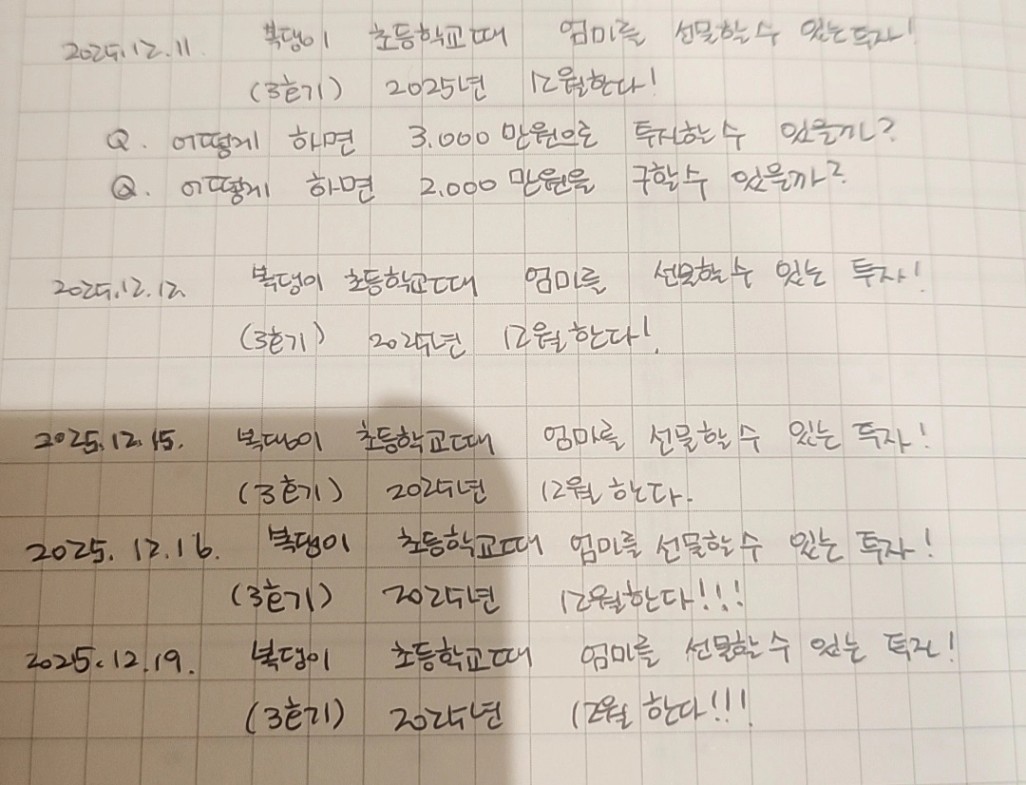 2025.12.11. 복댕이 초등학교때 엄마를 선물할수 있는투자!
(3호기) 2025년 12월한다!
Q. 어떻게 하면 3.000만원으로 투자할수 있을까?
Q. 어떻게 하면 2.000만원을 구할수 있을까?
2025.12.12. 복댕이 초등학교때 엄마를 선물할수 있는 투자!
(3호기) 2025년 12월한다!
2025.12.15. 복댕이 초등학교때 엄마를 선물할수 있는 투자!
(3호기) 2025년 12월 한다.
2025.12.16. 복댕이 초등학교때 엄마를 선물할수 있는 투자!
(3호기) 2025년 12월한다!!!
2025.12.19. 복댕이 초등학교때 엄마를 선물할수 있는 투자!
(3호기) 2025년 12월 한다!!!